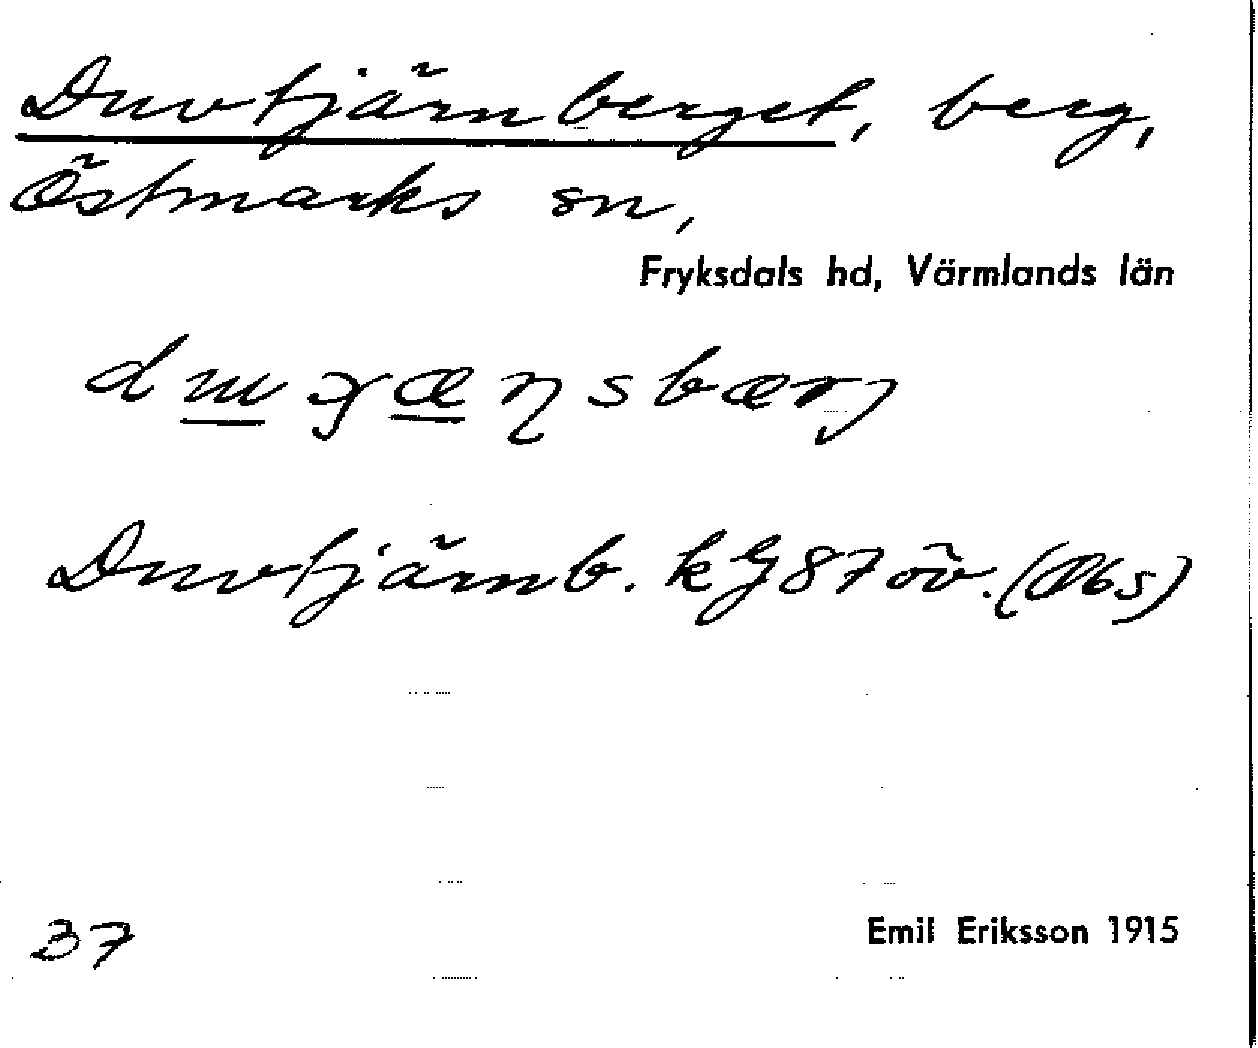 Duvtjärnberget, berg,
Östmarks sn,
Fryksdals hd, Värmlands län
Duvtjärnb. kG 87 öv. (Obs)
37
Emil Eriksson 1915